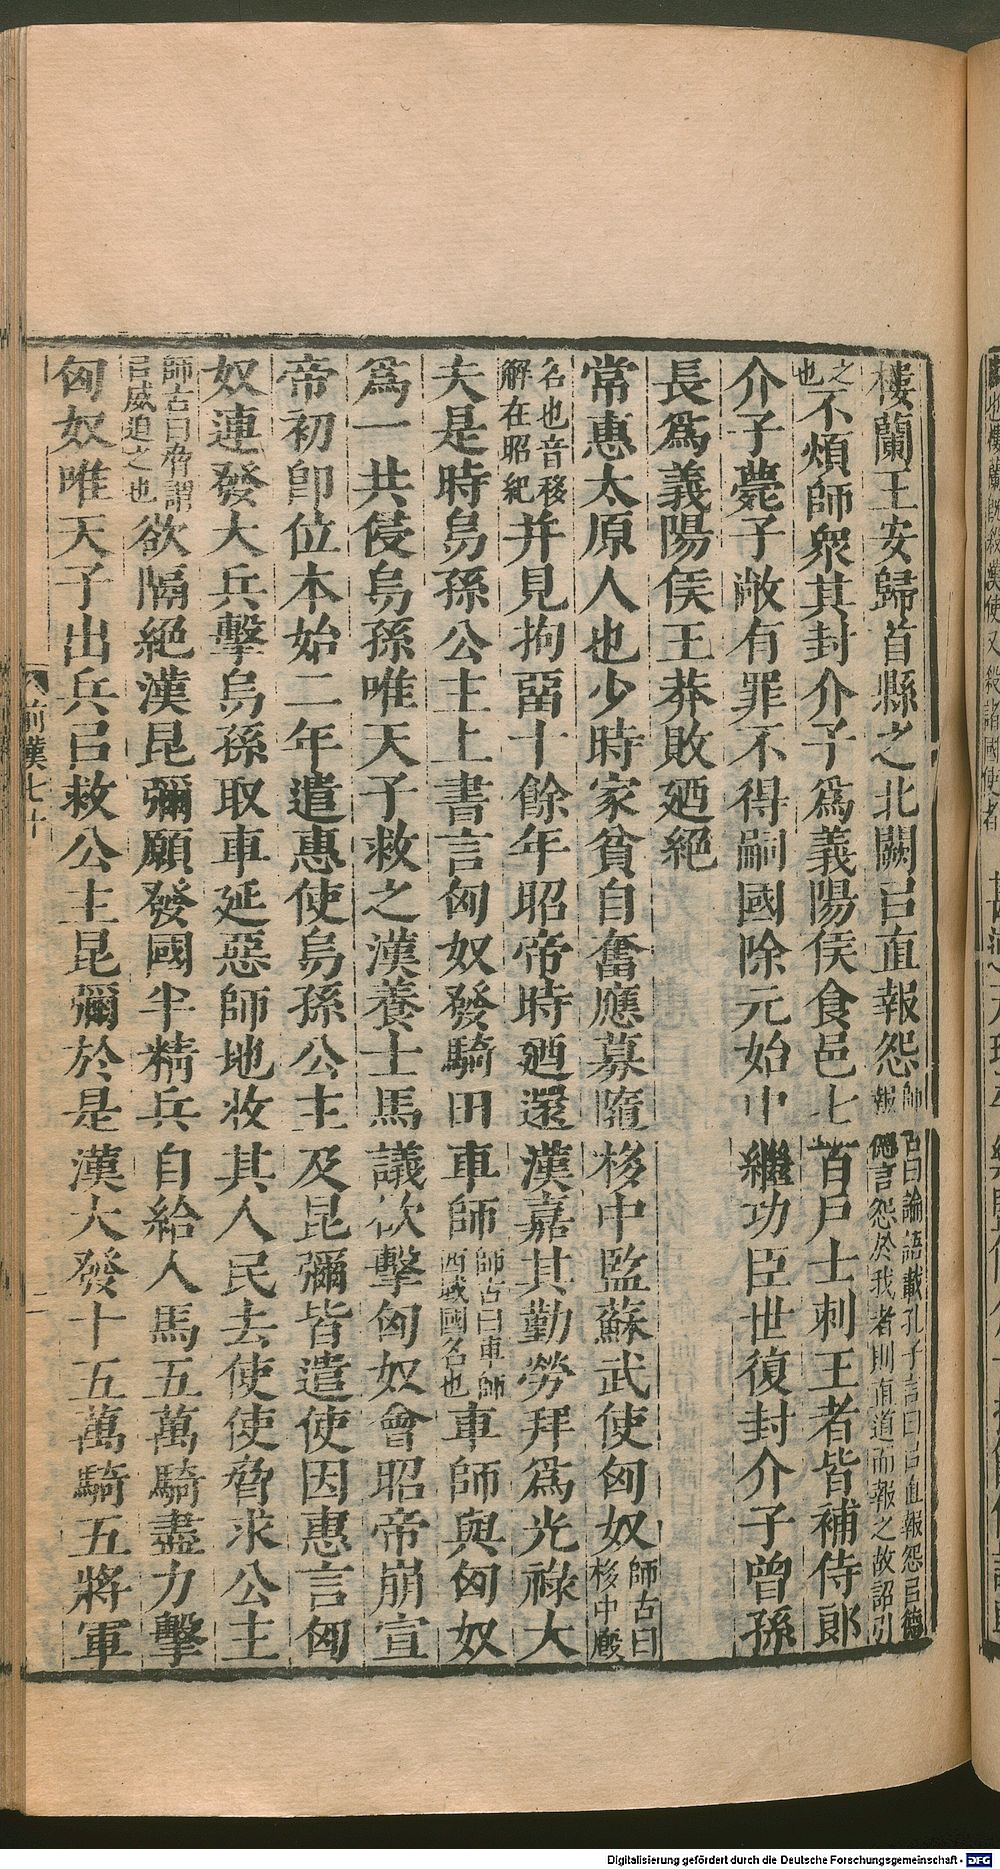 樓蘭王安歸首縣之北闕㠯直報怨師古曰論語載孔子言曰㠯直報怨㠯德報德言怨於我者則直道而報之故詔引
之也不煩師衆其封介子爲義陽侯食邑七百戶士刺王者皆補侍郎
介子薨子敞有罪不得嗣國除元始中繼功臣世復封介子曾孫
長爲義陽侯王莽敗廼絕
常惠太原人也少時家貧自奮應募隨栘中監蘇武使匈奴師古曰栘中廄
名也音移解在昭紀并見拘留十餘年昭帝時廼還漢嘉其勤勞拜爲光祿大
夫是時烏孫公主上書言匈奴發騎田車師師古曰車師西域國名也車師與匈奴
爲一共侵烏孫唯天子救之漢養士馬議欲擊匈奴會昭帝崩宣
帝初即位本始二年遣惠使烏孫公主及昆彌皆遣使因惠言匈
奴連發大兵擊烏孫取車延惡師地收其人民去使使脅求公主
師古曰脅謂㠯威迫之也欲隔絕漢昆彌願發國半精兵自給人馬五萬騎盡力擊
匈奴唯天子出兵㠯救公主昆彌於是漢大發十五萬騎五將軍
前漢七十
二
Digitalisierung gefördert durch die Deutsche Forschungsgemeinschaft - DFG